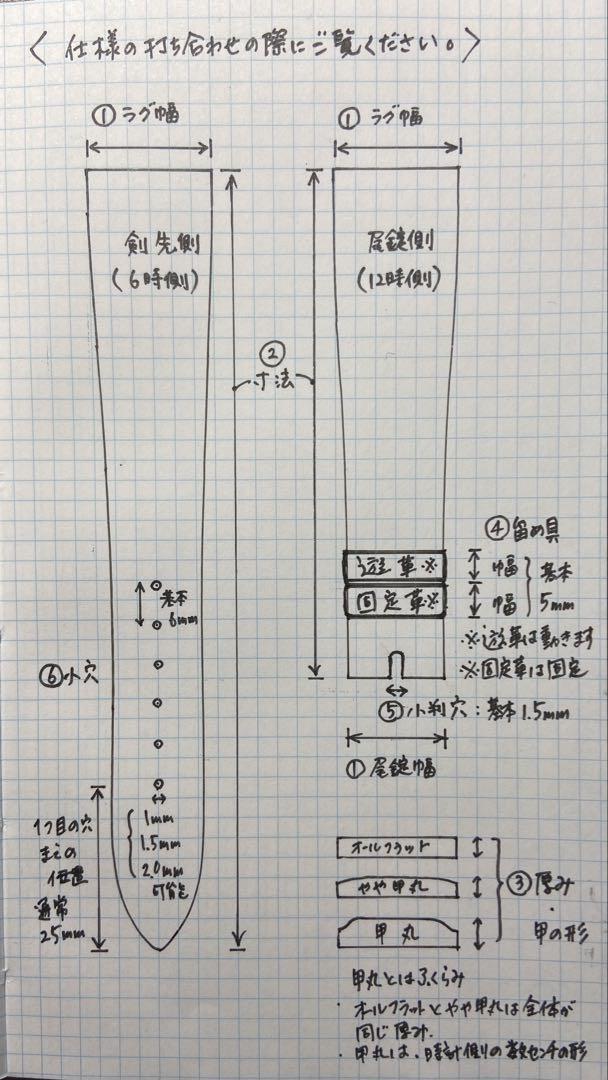 〈 仕様の打ち合わせの際にご覧ください。〉
① ラグ幅
① ラグ幅
剣先側
(6時側)
尾錠側
(12時側)
②
寸法
④ 留め具
遊革※
幅
固定革※
幅
基本
5mm
※遊革は動きます
※固定革は固定
⑤小判穴:基本1.5mm
① 尾錠幅
基本
6mm
⑥小穴
1つ目の穴
までの
位置
通常
25mm
1mm
1.5mm
2.0mm
可能
オールフラット
やや甲丸
甲丸
③厚み
・
甲の形
甲丸とはふくらみ
・オールフラットとやや甲丸は全体が
同じ厚み.
・甲丸は、時計側の数センチの形